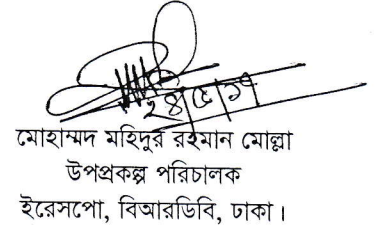 ২৪/৫/১৭
মোহাম্মদ মহিদুর রহমান মোল্লা
উপপ্রকল্প পরিচালক
ইরেসপো, বিআরডিবি, ঢাকা।